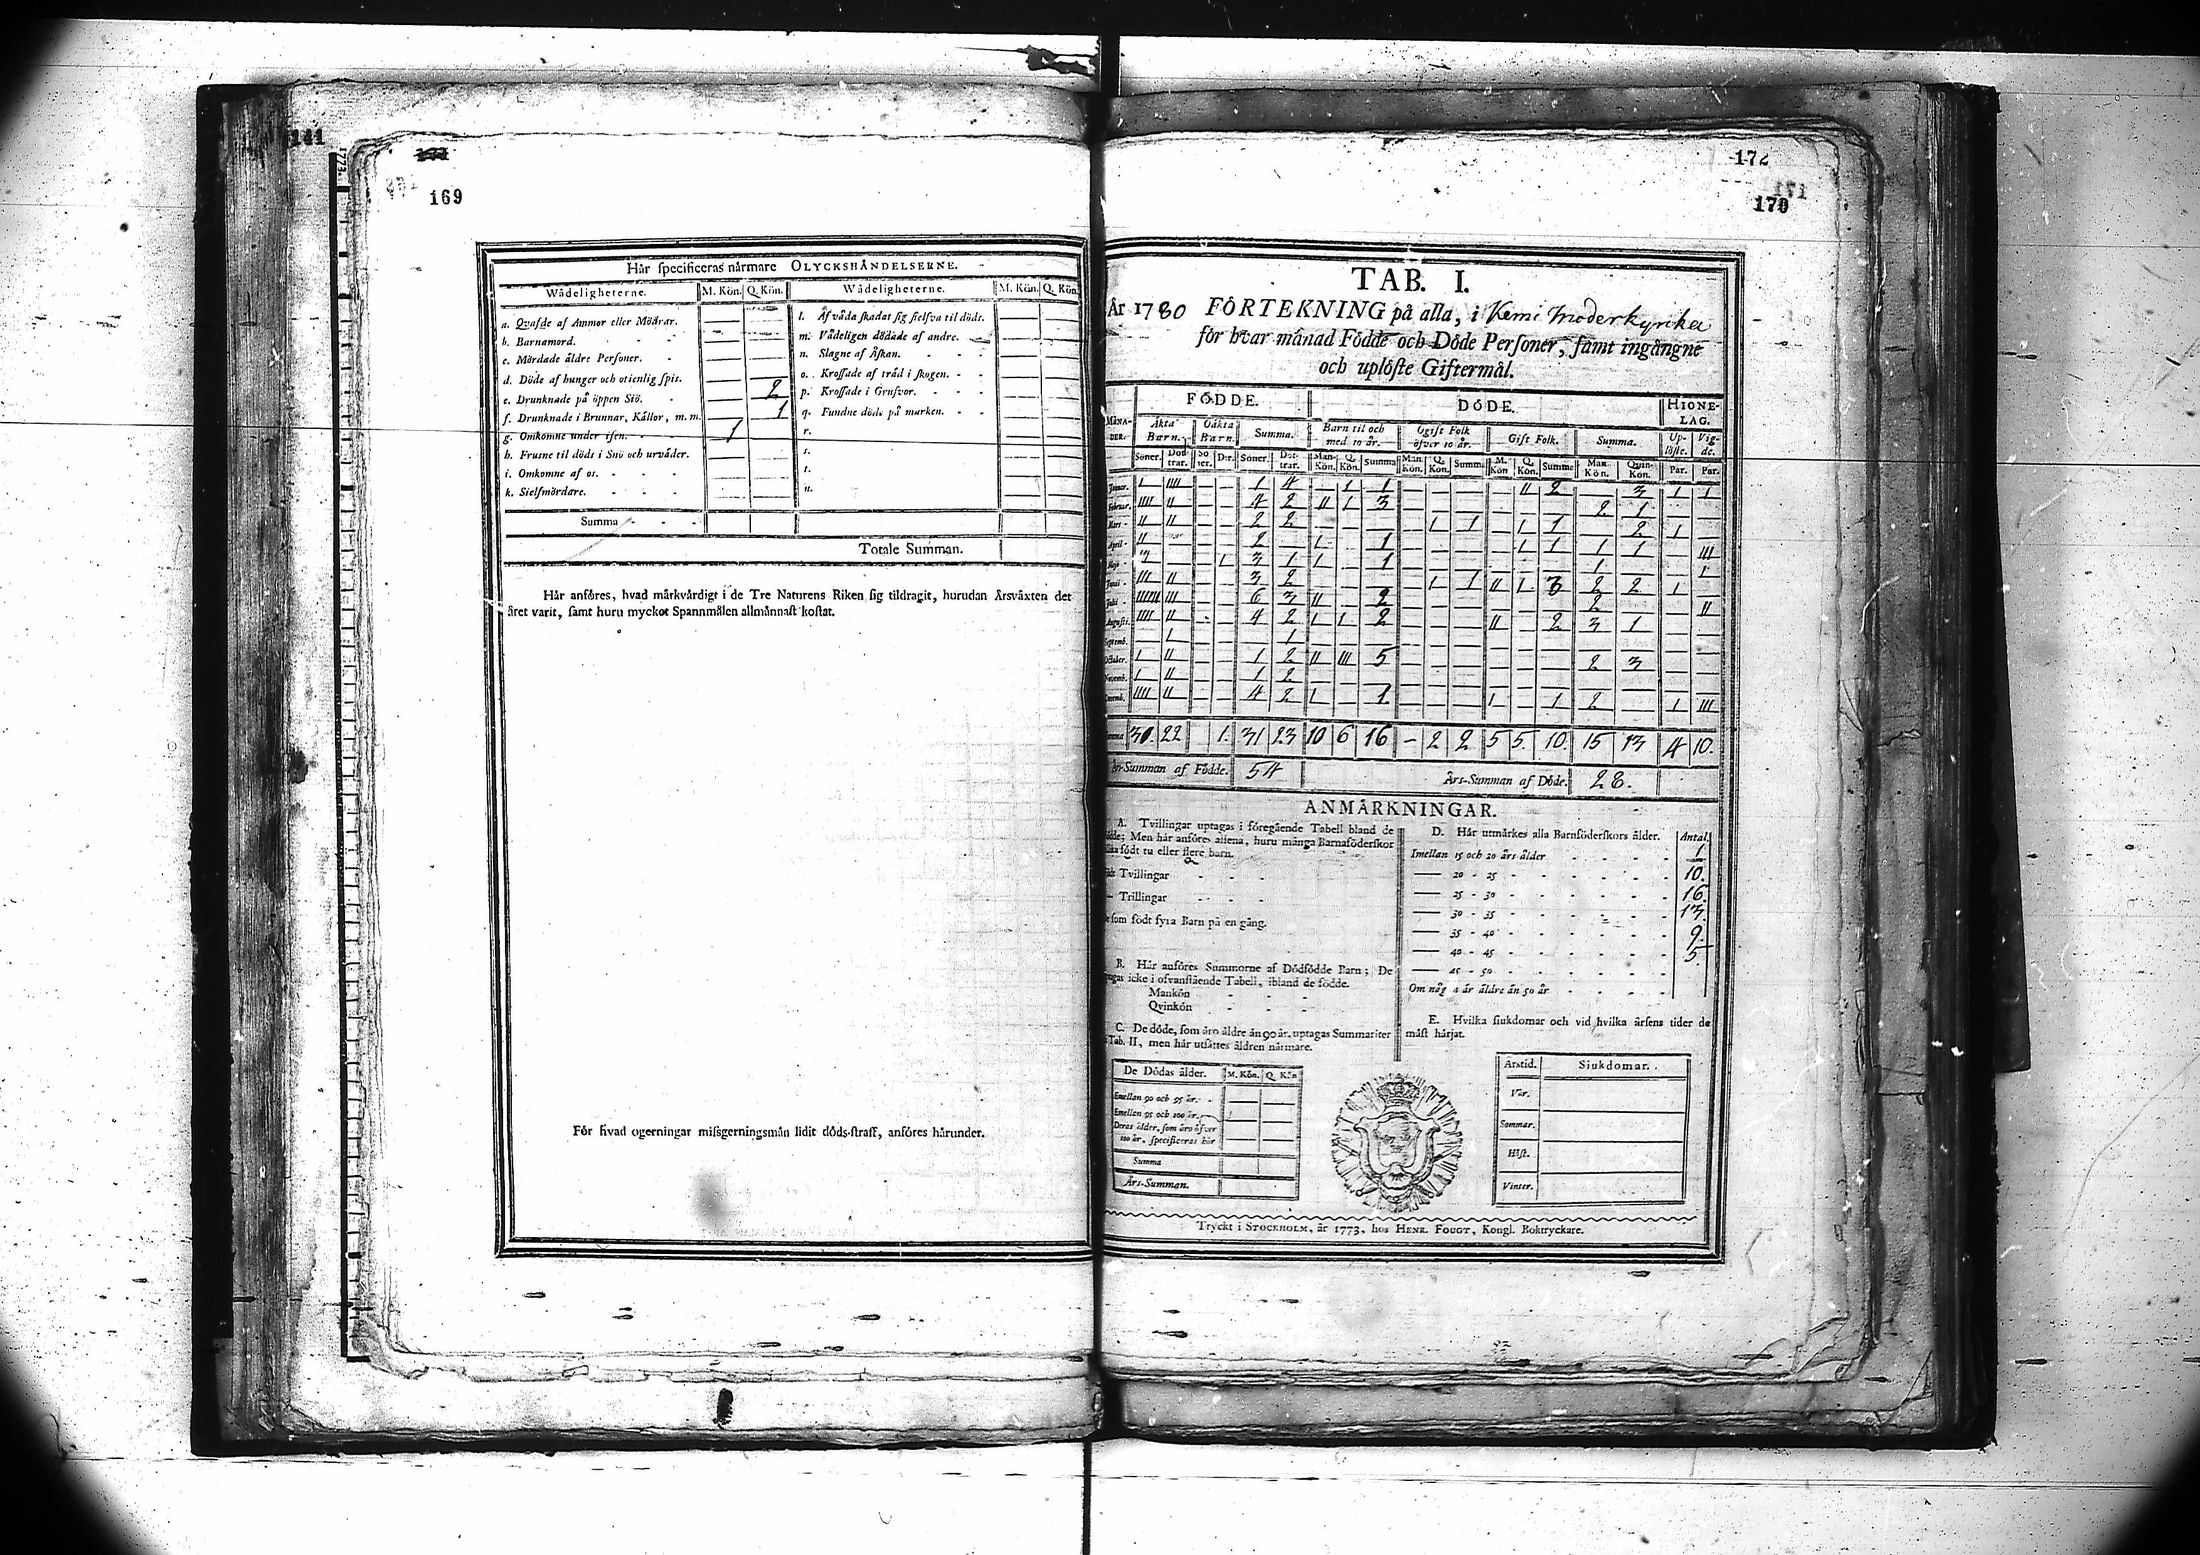 141
1773.
171
169
Hår specificeras nårmare OLYCKSHÅNDELSERNE.
Wådeligheterne. M. Kön. Q. Kön. Wådeligheterne. M. Kön. Q. Kön.
a. Qvafde af Ammor eller Mödrar. — — l. Af våda skadat sig sielfva til döds. — —
b. Barnamord. — — m. Vådeligen dödade af andre. — —
c. Mördade åldre Personer. — — n. Slagne af Åskan. — —
d. Döde af hunger och otienlig spis. — — o. Krossade af träd i skogen. — —
e. Drunknade på öppen Siö. — 2 p. Krossade i Grufvor. — —
f. Drunknade i Brunnar, Källor, m. m. — 1 q. Fundne döds på marken. — —
g. Omkomne under isen. 1 — r. — —
h. Frusne til döds i Snö och urväder. — — s. — —
i. Omkomne af os. — — t. — —
k. Sielfmördare. — — u. — —
Summa
Totale Summan.
Hår anföres, hvad mårkvårdigt i de Tre Naturens Riken sig tildragit, hurudan Årsvåxten det
året varit, samt huru mycket Spannmålen allmånnast kostat.
För hvad ogerningar missgerningsmån lidit döds-straff, anföres hårunder.
172
171
170
TAB. I.
År 1780 FÖRTEKNING på alla, i Kemi Moderkyrka
för hvar månad Födde och Döde Personer, samt ingångne
och uplöste Giftermål.
FÖDDE. DÖDE. HIONE-
LAG.
MÅNA-
DER. Äkta
Barn. Oäkta
Barn. Summa. Barn til och
med 10 år. Ogift Folk
öfver 10 år. Gift Folk. Summa. Up-
löste. Vig-
de.
Söner. Döt-
trar. Sö
ner. Dr. Söner. Döt-
trar. Man-
Kön. Q.
Kön. Summa Man.
Kön. Q.
Kön. Summa M.
Kön Q.
Kön. Summa Man
Kön. Quin-
Kön. Par. Par.
Januar. I IIII — — 1 4 — I 1 — — — — II 2 — 3 I I
Februar. IIII II — — 4 2 II I 3 — — — — — — 2 1 — —
Mart II II — — 2 2 — — — — I 1 — I 1 — 2 I —
April II — — — 2 — I — 1 — — — — I 1 1 1 — III
Maji 3 I 3 1 I — 1 — — — — — — 1 — — I
Junii III II — — 3 2 — — — — I 1 II I 3 2 2 I —
Julii IIIIII III — — 6 3 II — 2 — — — — — — 2 — — II
Augusti. IIII II — — 4 2 I I 2 — — — II — 2 3 1 — —
Septemb. — I — — — 1 — — — — — — — — — — — — —
October. I II — — 1 2 II III 5 — — — — — — 2 3 — —
Novemb. I II — — 1 2 — — — — — — — — — — — — —
Decemb. IIII II — — 4 2 I — 1 — — — I — 1 2 — I III
Summa 30. 22 1. 31 23 10 6 16 — 2 2 5 5. 10. 15 13 4 10.
Års-Summan af Födde. 54 Års-Summan af Döde. 28.
ANMÄRKNINGAR.
A. Tvillingar uptagas i föregående Tabell bland de
födde; Men hår anföres allena, huru många Barnaföderskor
född tu eller flere barn.
Tvillingar
— Trillingar
som födt fyra Barn på en gång.
B. Hår anföres Summorne af Dödfödde Barn; De
uptagas icke i ofvanstående Tabell, ibland de födde.
Mankön
Qvinkön
C. De döde, som åro åldre ån 90 år, uptagas Summariter
i Tab. II, men hår utsåttes åldren nårmare.
De Dödas ålder. M. Kön. Q. Kön
Emellan 90 och 95 år. — —
Emellan 95 och 100 år. — —
Deras ålder, som åro öfver
100 år, specificeras hår — —
Summa
Års-Summan.
D. Hår utmärkes alla Barnföderskors ålder. Antal
Imellan 15 och 20 års ålder 1
— 20 - 25 10.
— 25 - 30 16
— 30 - 35 13.
— 35 - 40 9.
— 40 - 45 5.
— 45 - 50
Om någ a år åldre ån 50 år
E. Hvilka siukdomar och vid hvilka årsens tider de
måst hårjat.
Årstid. Siukdomar.
Vår.
Sommar.
Höst.
Vinter.
Tryckt i STOCKHOLM, år 1773, hos HENR. FOUGT, Kongl. Boktryckare.